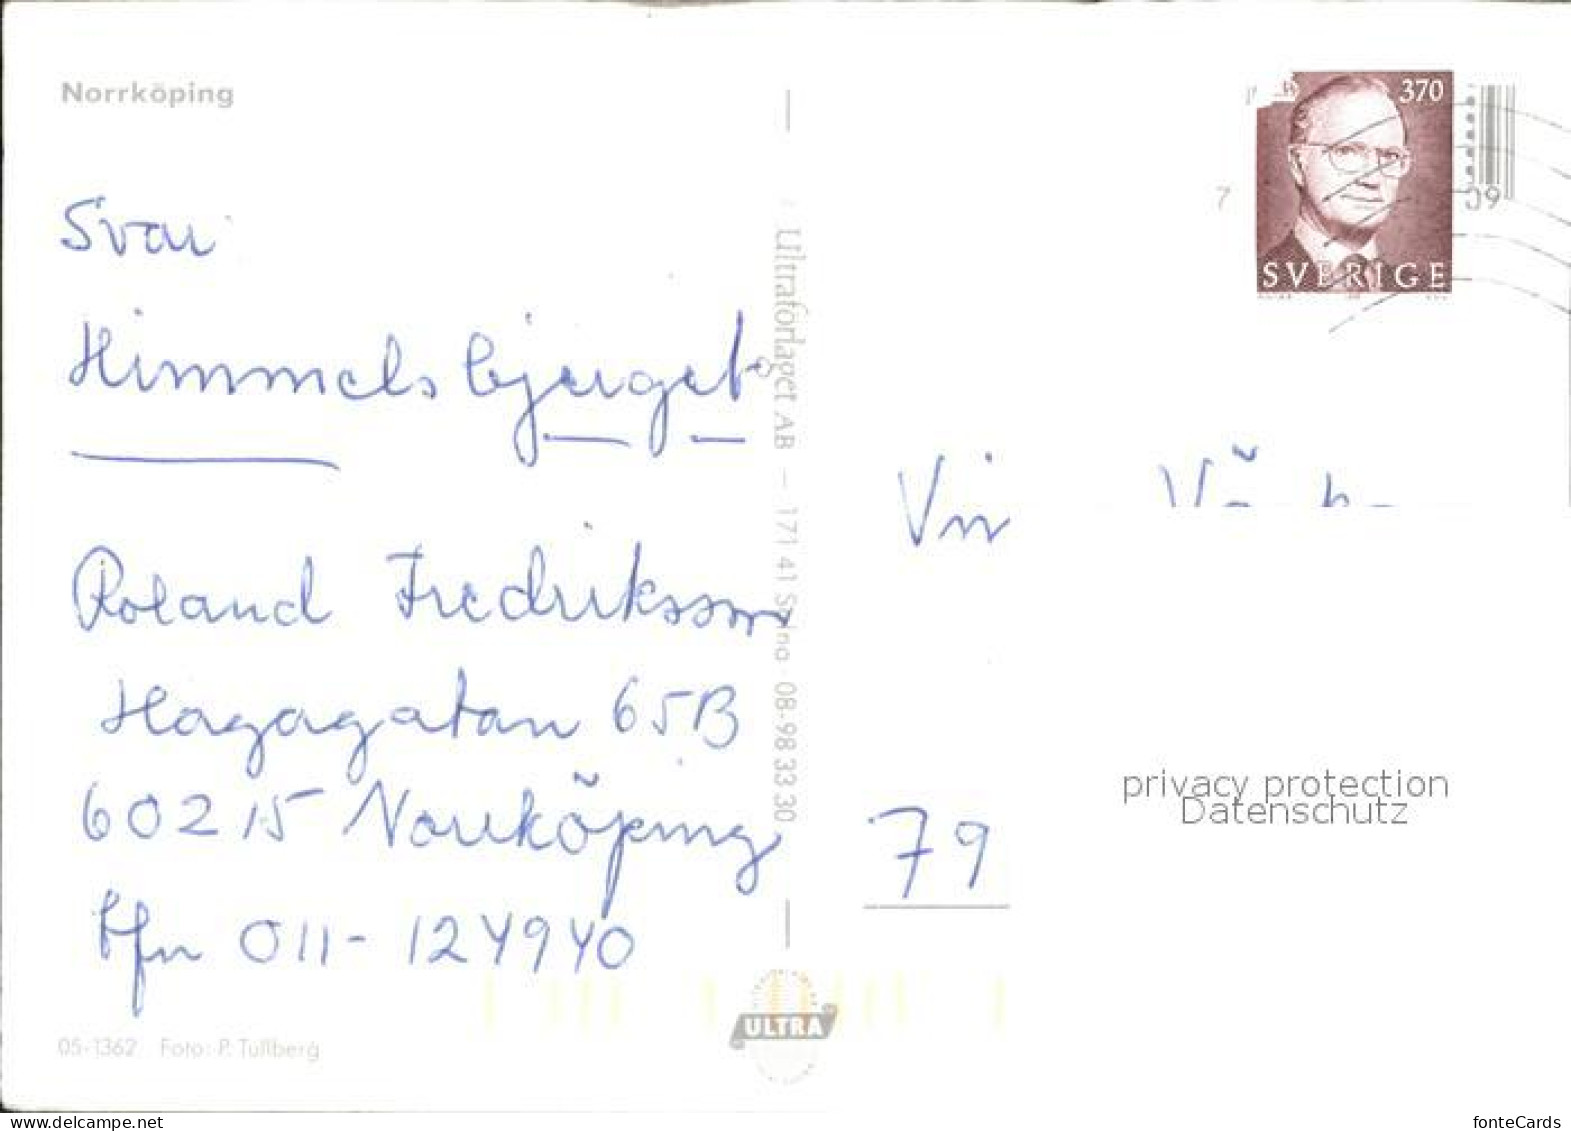 Norrköping
Svar
Himmelsbjerget
Roland Fredriksson
Hagagatan 65B
60215 Norrköping
tfn 011-124940
05-1362 Foto: P. Tullberg
Ultraförlaget AB – 171 41 Solna · 08-98 33 30
ULTRA
370
SVERIGE
7
09
Vin
79
privacy protection
Datenschutz
www.delcampe.net
fonteCards